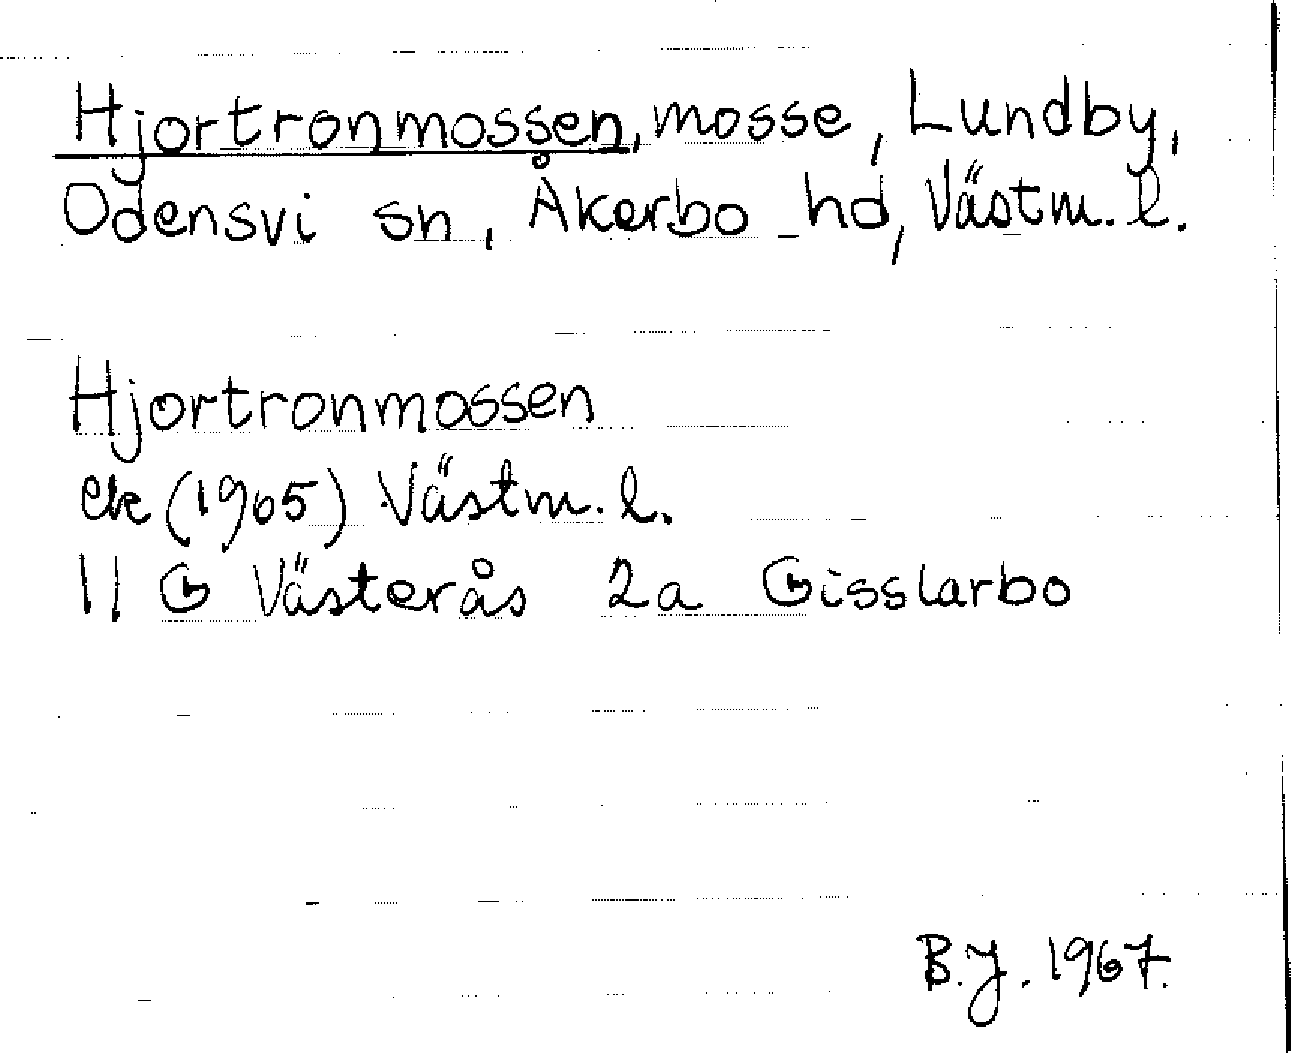 Hjortronmossen, mosse, Lundby,
Odensvi sn, Åkerbo hd, Västm. l.
Hjortronmossen
ek (1965) Västm. l.
11 G Västerås 2a Gisslarbo
B.J. 1967.